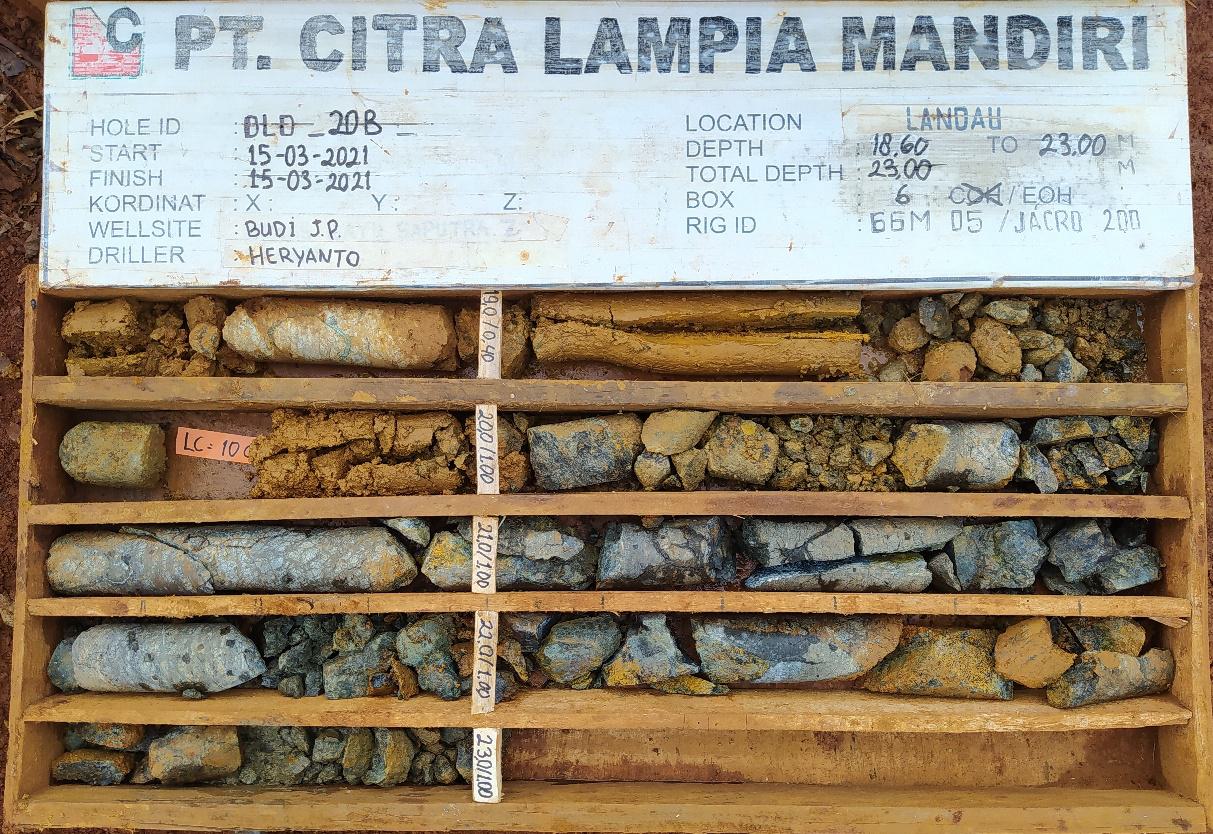 LC PT. CITRA LAMPIA MANDIRI
HOLE ID : DLD _ 20B _
START : 15-03-2021
FINISH : 15-03-2021
KORDINAT : X : Y : Z:
WELLSITE : BUDI J.P.
DRILLER : HERYANTO
LOCATION LANDAU
DEPTH : 18,60 TO 23,00 M
TOTAL DEPTH : 23,00 M
BOX 6 COK/EOH
RIG ID : GGM 05 /JACRO 200
19.0/0.40
LC = 10
20.0/1.00
21.0/1.00
22.0/1.00
23.0/1.00